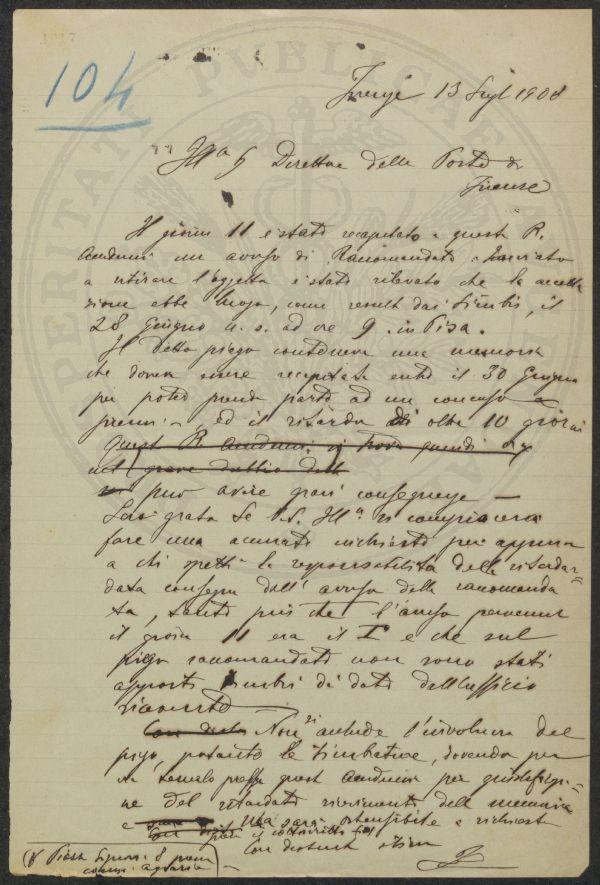 104
Firenze 13 Lugl 1908
Ill.a S. Direttore delle Poste di
Firenze
Il giorno 11 è stato recapitato a quest R.
un avviso di Raccomandata e inviato
a ritirare l'oggetto è stato rilevato che la accetta
zione ebbe luogo, come result dai timbri, il
28 Giugno u. s. ad ore 9 in Pisa.
Il detto piego conteneva una memoria
che doveva essere recapitata entro il 30 Giugno
per poter prender parte ad un concorso a
premi - ed il ritardo di oltre 10 giorni
Quest R. si trova quindi
nel grave dubbio
può avere gravi conseguenze -
Sarò grato se V.S. Ill.a si compiacerà
fare una accurata inchiesta per appurare
a chi spetti la responsabilità della ritardata
consegna dell'avviso della raccomanda
ta, tanto più che l'avviso pervenuto
il giorno 11 era il I° e che sul
piego raccomandato non sono stati
apposti timbri di data dall'ufficio
ricevente
Non si include l'involucro del
piego, portante le timbrature, dovendo
per giustificazio
ne del ritardato ricevimento della memoria
e ma sarà ostensibile a richiesta
Con distinta stima
Piazza Signori 8